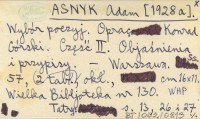 ASNYK Adam [1928a].
Wybór poezyj. Oprac. Konrad
Górski. Część II. Objaśnienia
i przypisy. – Warszawa.
57, (2 tabl.) okl. cm 16x11.
Wielka Bibljoteka nr 130. WHP
Tatry: s. 13, 26 i 27